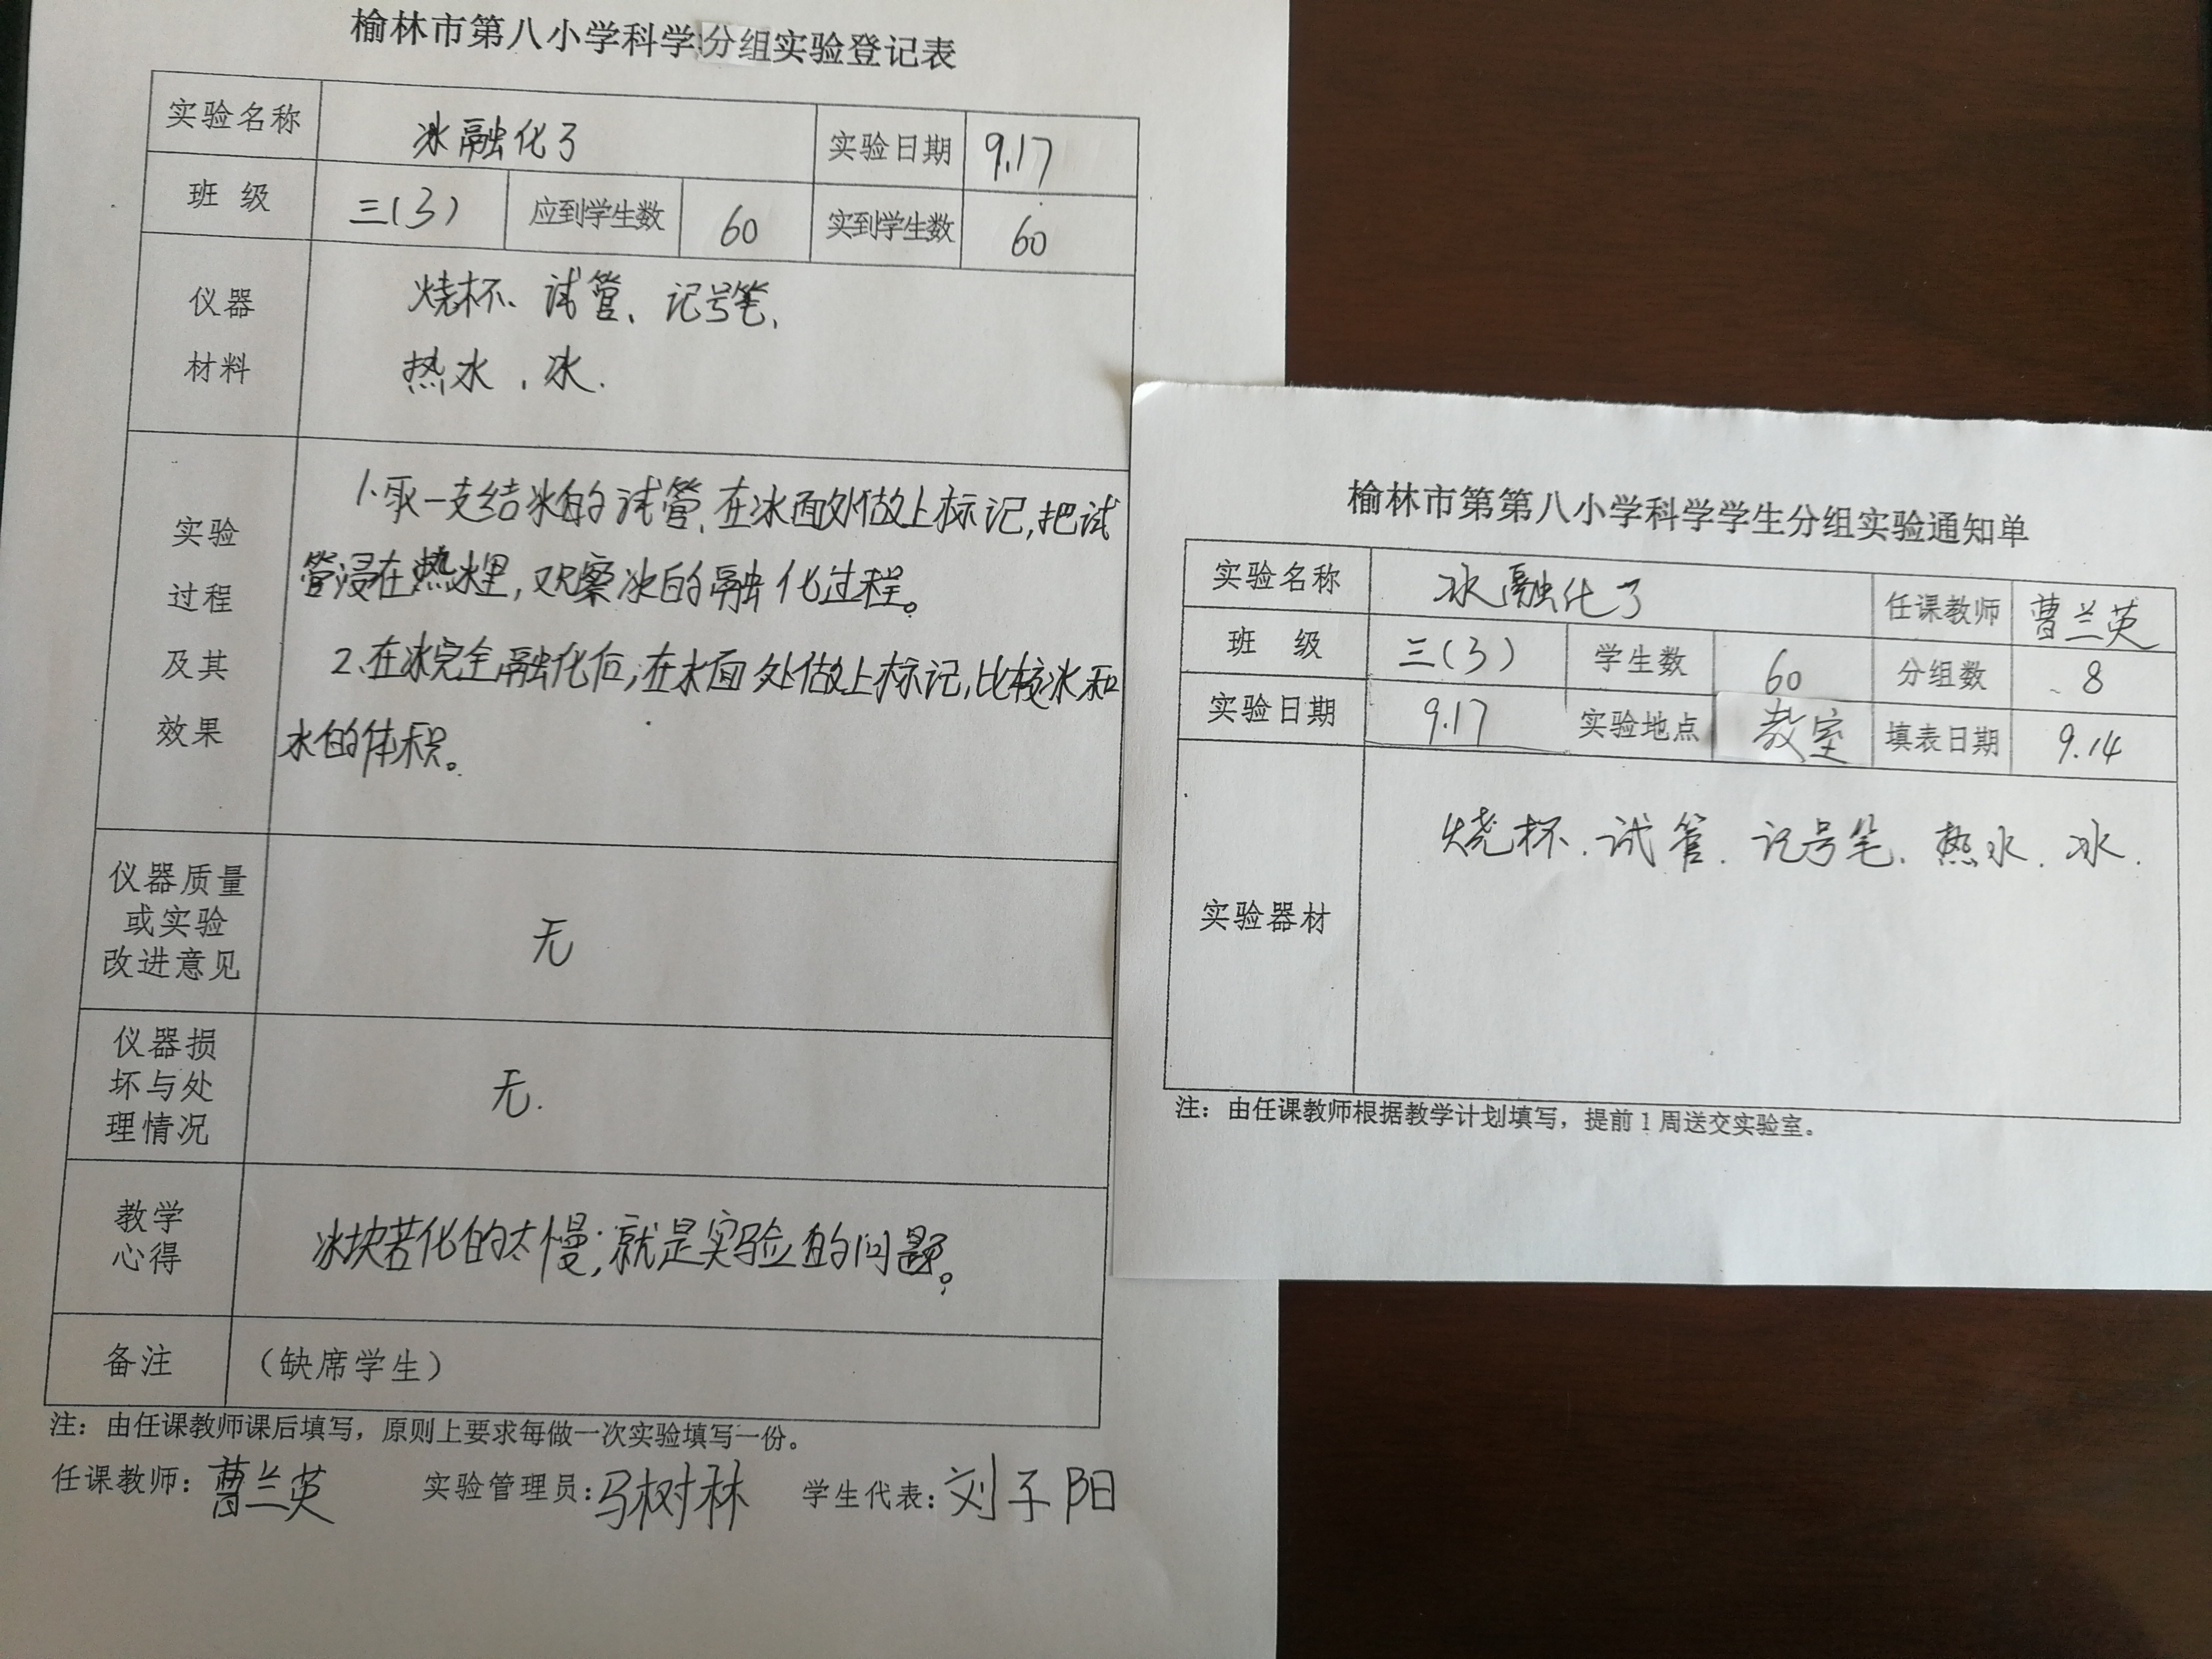 榆林市第八小学科学分组实验登记表
实验名称 冰融化了 实验日期 9.17
班 级 三(3) 应到学生数 60 实到学生数 60
仪器
材料
烧杯、试管、记号笔、
热水、冰.
实验
过程
及其
效果
1.取一支结冰的试管,在冰面处做上标记,把试
管浸在热水里,观察冰的融化过程。
2.在冰完全融化后,在水面处做上标记,比较冰和
水的体积。
仪器质量
或实验
改进意见
无
仪器损
坏与处
理情况
无.
教学
心得
冰块若化的太慢,就是实验的问题。
备注 （缺席学生）
注：由任课教师课后填写，原则上要求每做一次实验填写一份。
任课教师：曹兰英 实验管理员：马树林 学生代表：刘子阳
榆林市第第八小学科学学生分组实验通知单
实验名称 冰融化了 任课教师 曹兰英
班 级 三(3) 学生数 60 分组数 8
实验日期 9.17 实验地点 教室 填表日期 9.14
实验器材 烧杯.试管.记号笔.热水.冰.
注：由任课教师根据教学计划填写，提前1周送交实验室。